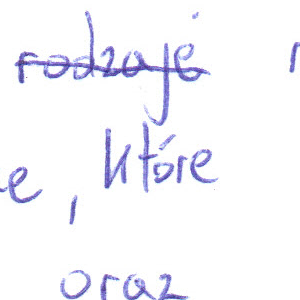 rodzaje
, które
oraz